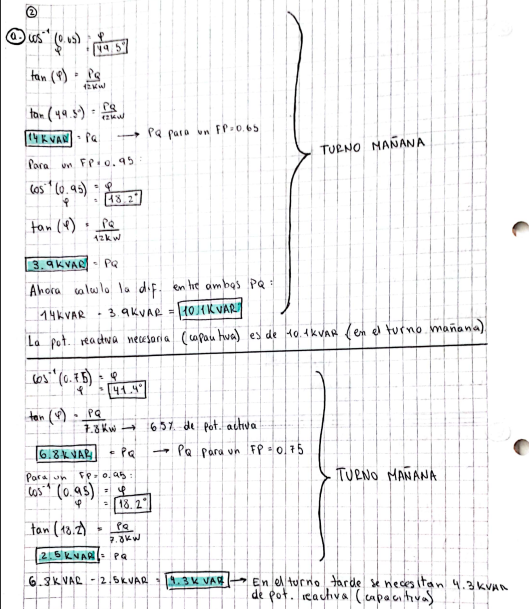 ②
a. cos⁻¹ (0.65) = φ
φ = 49.5°
tan (φ) = PQ / 12KW
tan (49.5°) = PQ / 12KW
14 KVAR = PQ → PQ para un FP=0.65
Para un FP=0.95:
cos⁻¹ (0.95) = φ
φ = 18.2°
tan (φ) = PQ / 12KW
3.9KVAR = PQ
Ahora calculo la dif. entre ambas PQ:
14KVAR - 3.9KVAR = 10.1KVAR
TURNO MAÑANA
La pot. reactiva necesaria (capacitiva) es de 10.1KVAR (en el turno mañana)
cos⁻¹ (0.75) = φ
φ = 41.4°
tan (φ) = PQ / 7.8KW → 65% de pot. activa
6.8KVAR = PQ → PQ para un FP = 0.75
Para un FP=0.95:
cos⁻¹ (0.95) = φ
φ = 18.2°
tan (18.2) = PQ / 7.8KW
2.5KVAR = PQ
TURNO MAÑANA
6.8KVAR - 2.5KVAR = 4.3KVAR → En el turno tarde se necesitan 4.3KVAR
de pot. reactiva (capacitiva)